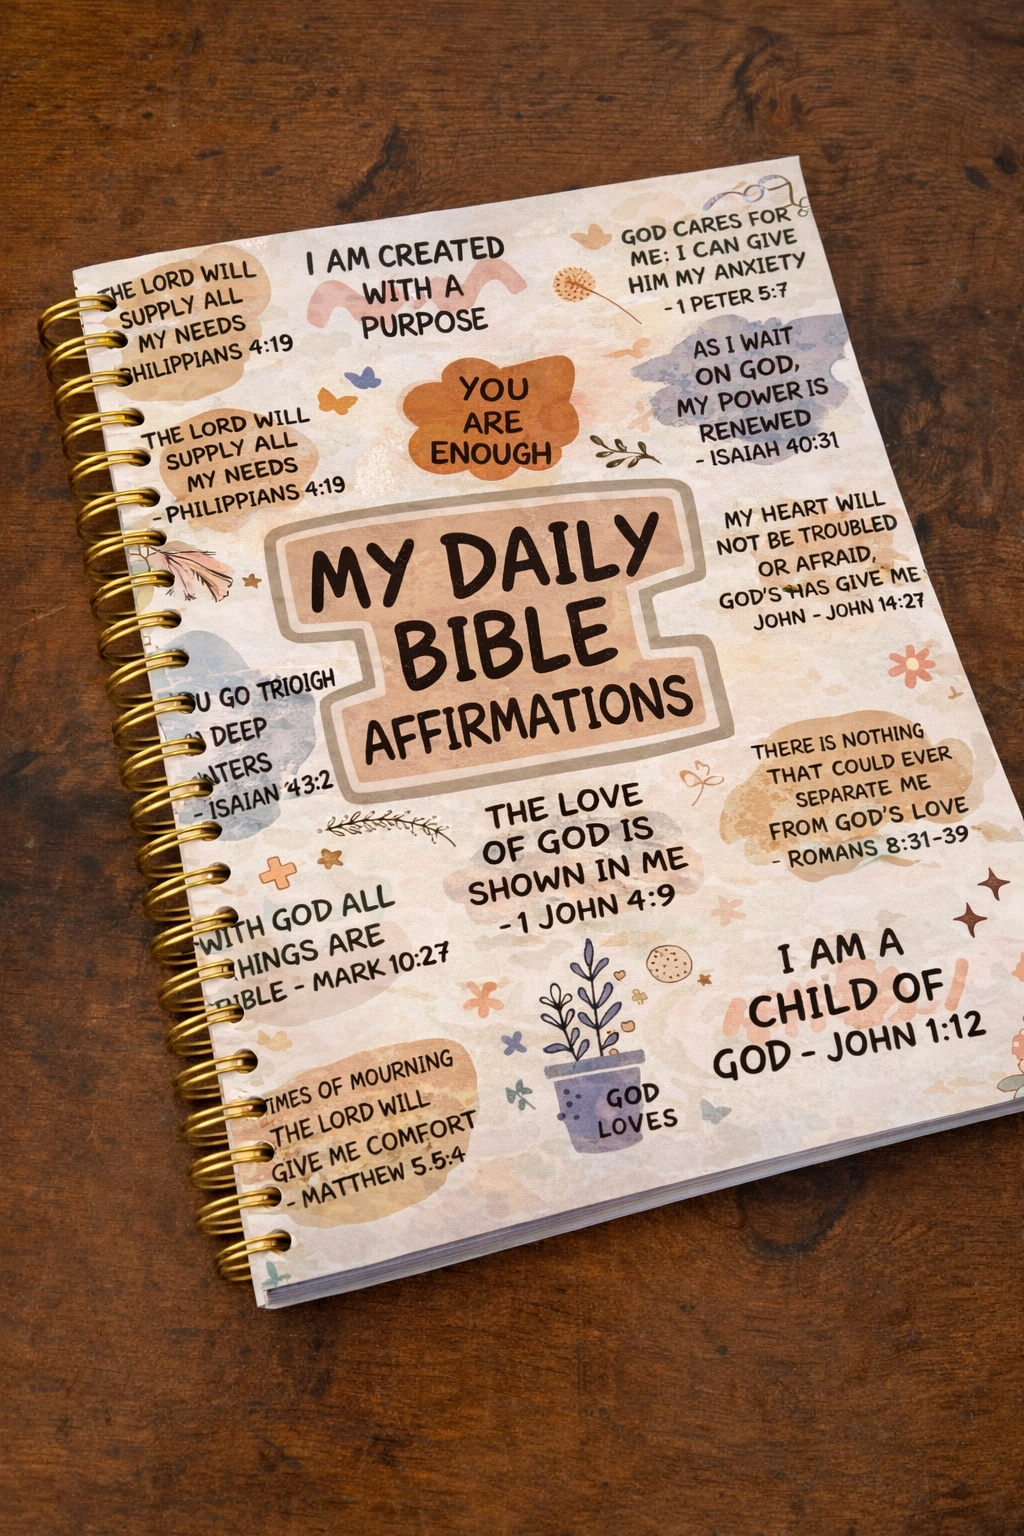 THE LORD WILL
SUPPLY ALL
MY NEEDS
PHILIPPIANS 4:19
I AM CREATED
WITH A
PURPOSE
GOD CARES FOR
ME: I CAN GIVE
HIM MY ANXIETY
- 1 PETER 5:7
YOU
ARE
ENOUGH
AS I WAIT
ON GOD,
MY POWER IS
RENEWED
- ISAIAH 40:31
THE LORD WILL
SUPPLY ALL
MY NEEDS
- PHILIPPIANS 4:19
MY DAILY
BIBLE
AFFIRMATIONS
MY HEART WILL
NOT BE TROUBLED
OR AFRAID,
GOD'S HAS GIVE ME
JOHN - JOHN 14:27
OU GO TRIOIGH
DEEP
- ISAIAN '43:2
THERE IS NOTHING
THAT COULD EVER
SEPARATE ME
FROM GOD'S LOVE
- ROMANS 8:31-39
THE LOVE
OF GOD IS
SHOWN IN ME
- 1 JOHN 4:9
WITH GOD ALL
HINGS ARE
IBLE - MARK 10:27
I AM A
CHILD OF
GOD - JOHN 1:12
IMES OF MOURNING
THE LORD WILL
GIVE ME COMFORT
- MATTHEW 5.5:4
GOD
LOVES